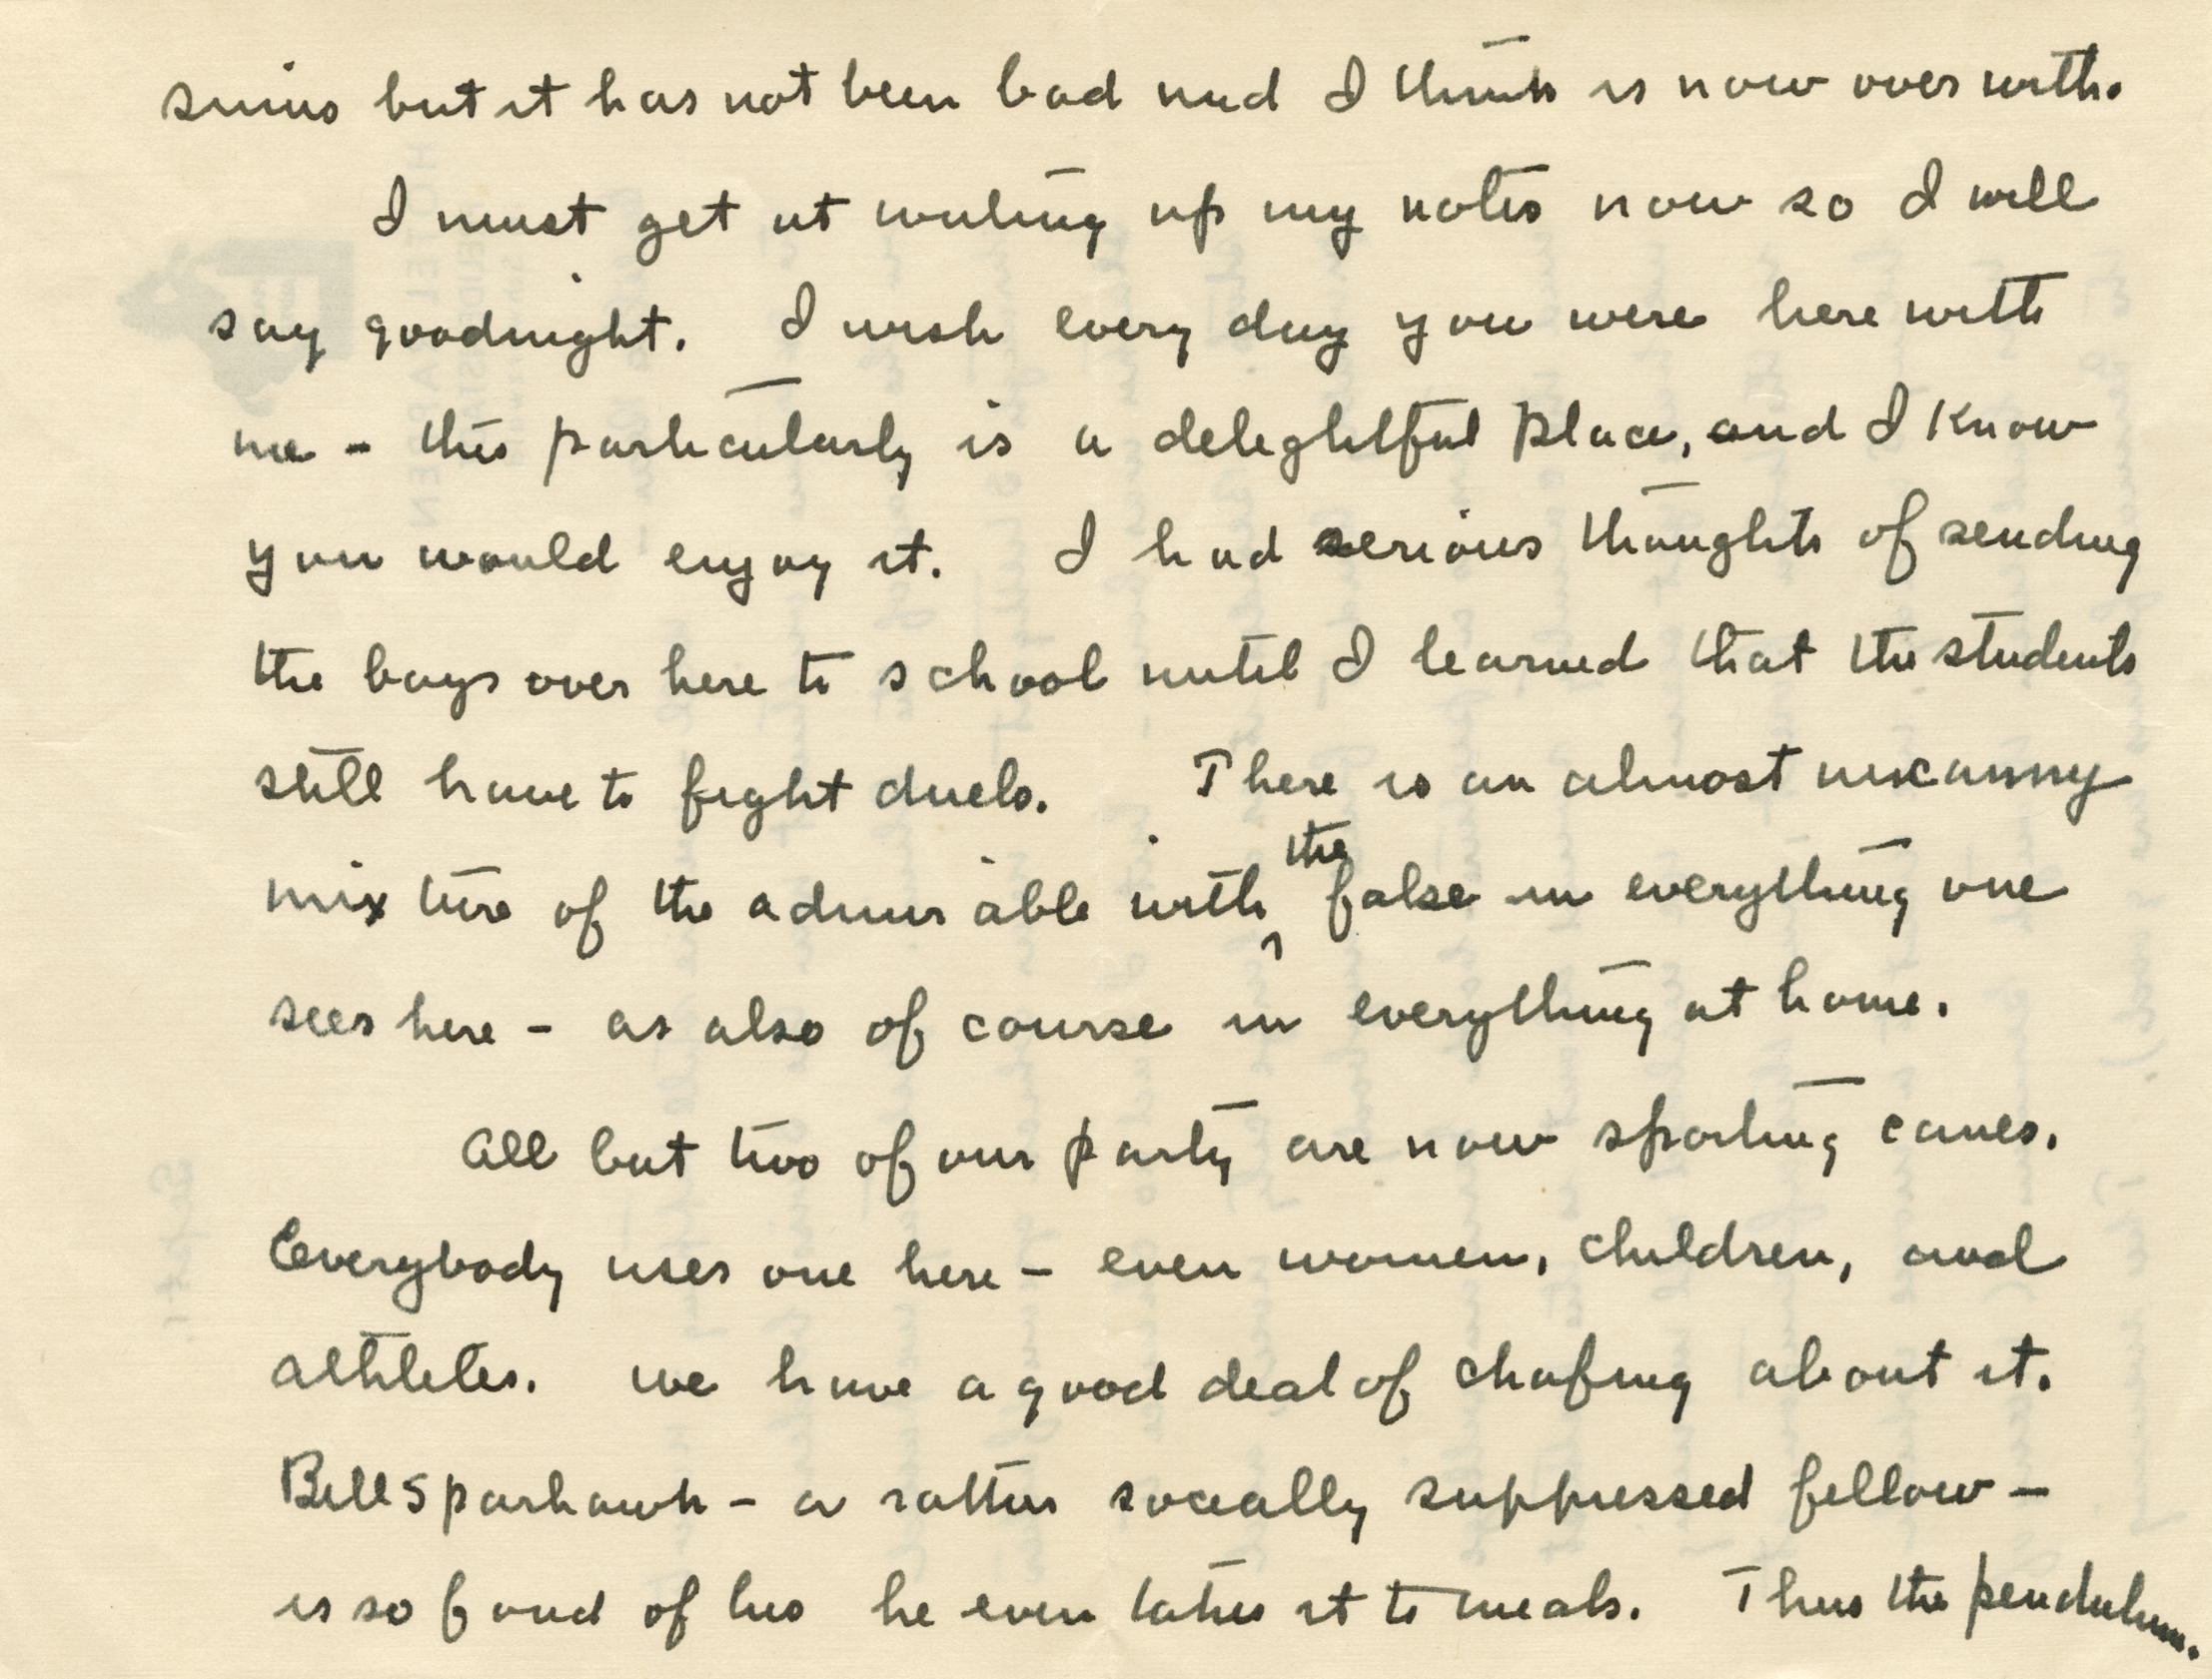 sinus but it has not been bad and I think is now over with.
I must get at writing up my notes now so I will
say goodnight. I wish every day you were here with
me - this particularly is a delightful place, and I know
you would enjoy it. I had serious thoughts of sending
the boys over here to school until I learned that the students
still have to fight duels. There is an almost uncanny
mixture of the admirable with the false in everything one
sees here - as also of course in everything at home.
All but two of our party are now sporting canes.
Everybody uses one here - even women, children, and
athletes. We have a good deal of chafing about it.
Bill Sparhawk - a rather socially suppressed fellow -
is so fond of his he even takes it to meals. Thus the pendulum.